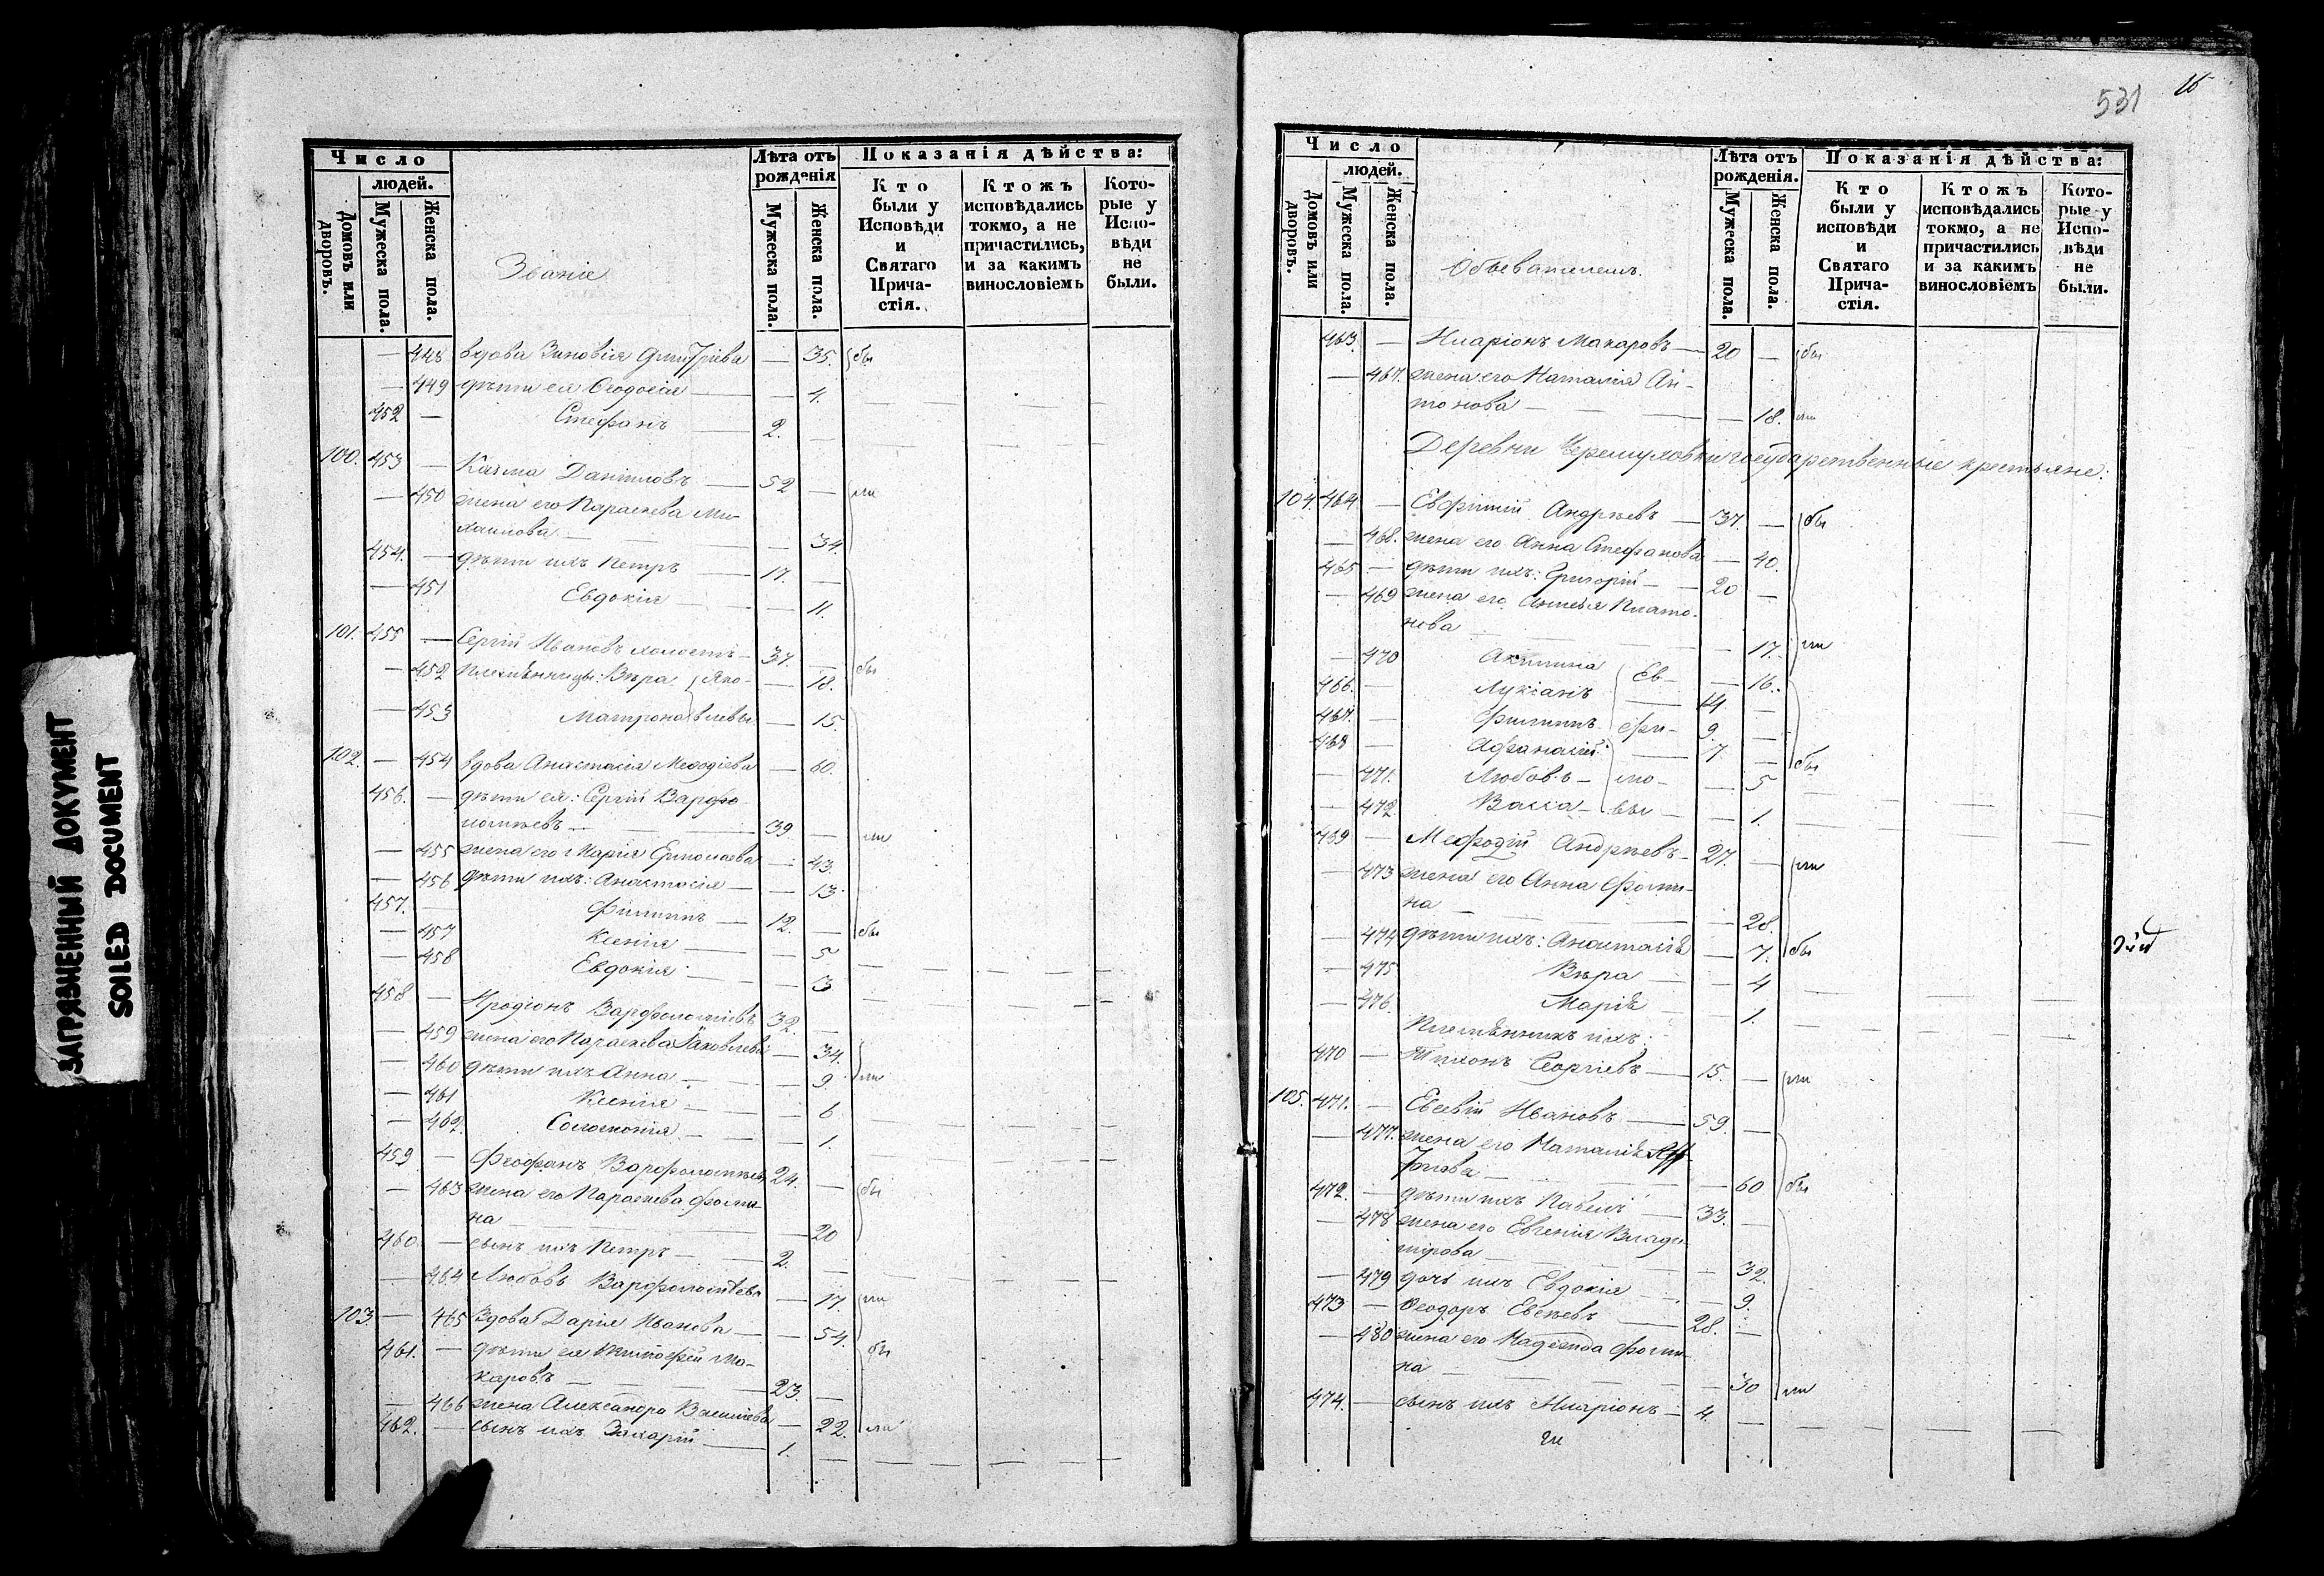 ЗАГРЯЗНЕННЫЙ ДОКУМЕНТ
SOILED DOCUMENT
Число
людей.
Домовъ или дворовъ.
Мужеска пола.
Женска пола.
Званіе
Лѣта отъ рожденія
Мужеска пола.
Женска пола.
Показанія дѣйства:
Кто были у Исповѣди и Святаго Прича-стія.
Ктожъ исповѣдались токмо, а не причастились, и за какимъ винословіемъ
Кото-рые у Испо-вѣди не были.
— 448 вдова Зиновія Димитріева — 35. бы
— 449 дѣти ея Ѳеодосія — 4.
452 — Стефанъ 2. —
100. 453 — Казма Даніиловъ — 52 — ли
— 450 жена его Параскева Ми-
хаилова — — 34.
454. — дѣти ихъ Петръ 17. —
— 451 Евдокія — 11.
101. 455 — Сергій Ивановъ холостъ — 37. — бы
— 452 Племѣнницы: Вѣра Яко- — 18.
— 453 Матрона влевы — 15.
102. — 454 вдова Анастасія Меѳодіева — 60.
456. — дѣти ея: Сергій Варфо-
ломѣевъ — 39 — ли
— 455 жена его Марія Ермолаева — 43.
— 456 дѣти ихъ: Анастасія — — 13.
457. — Филиппъ — 12. — бы
— 457 Ксенія — 5
— 458 Евдокія — 3
458 — Иродіонъ Варфоломѣевъ 32. —
— 459 жена его Параскева Іаковлева — 34.
— 460 дѣти ихъ Анна — — 9 ли
— 461 Ксенія — — 6
— 462. Соломонія — — 1.
459 — Феофанъ Варфоломѣевъ 24. — бы
— 463 жена его Параскева Фоми-
на — 20
460 — сынъ ихъ Петръ — 2. —
— 464 Любовь Варфоломѣева — 17. ли
103. — 465 Вдова Дарія Иванова — — 54.
461. — дѣти ея Тимофей Ма- бы
каровъ — 23. —
— 466 жена Александра Василіева — 22. ли
462. — сынъ ихъ Захарій — 1. —
531
16
Число
людей.
Домовъ или дворовъ.
Мужеска пола.
Женска пола.
Обывателемъ.
Лѣта отъ рожденія.
Мужеска пола.
Женска пола.
Показанія дѣйства:
Кто были у исповѣди и Святаго Прича-стія.
Ктожъ исповѣдались токмо, а не причастились и за какимъ винословіемъ
Кото-рые у Испо-вѣди не были.
463. — Иларіонъ Макаровъ — 20 — бы
— 467. жена его Наталія Ан-
тонова — — 18. ли
Деревни Черемуловки государственные крестьяне:
104. 464 — Евфимій Андрѣевъ — 37. — бы
— 468. жена его Анна Стефанова — 40.
465 — дѣти ихъ: Григорій — 20 —
— 469 жена его Плато-
нова — 17. ли
— 470 Акилина Ев- — 16.
466. — Лукіанъ 14 —
467. — Филиппъ фи- 9. —
468 — Афанасій 7 — бы
— 471. Любовь — мо- — 5
— 472. Васса — вы — 1.
469 — Мефодій Андрѣевъ — 27. — ли
— 473 жена его Анна Фоми-
на — — 28.
— 474 дѣти ихъ: Анастасія — 7. бы
— 475 Вѣра — 4
— 476. Марія — 1.
Племѣнникъ ихъ:
470 — Тихонъ Георгіевъ — 15. — ли
105. 471. — Евсевій Ивановъ — 59. —
— 477. жена его Наталія
— 60 бы
472. — дѣти ихъ Павелъ 33. —
— 478 жена его Евгенія Влади-
мірова — — 32.
— 479 дочь ихъ Евдокія — 9.
473 — Ѳеодоръ Евсѣевъ — 28. —
— 480 жена его Надежда Фоми-
на — 30 ли
474. — сынъ ихъ Иларіонъ — 4. —